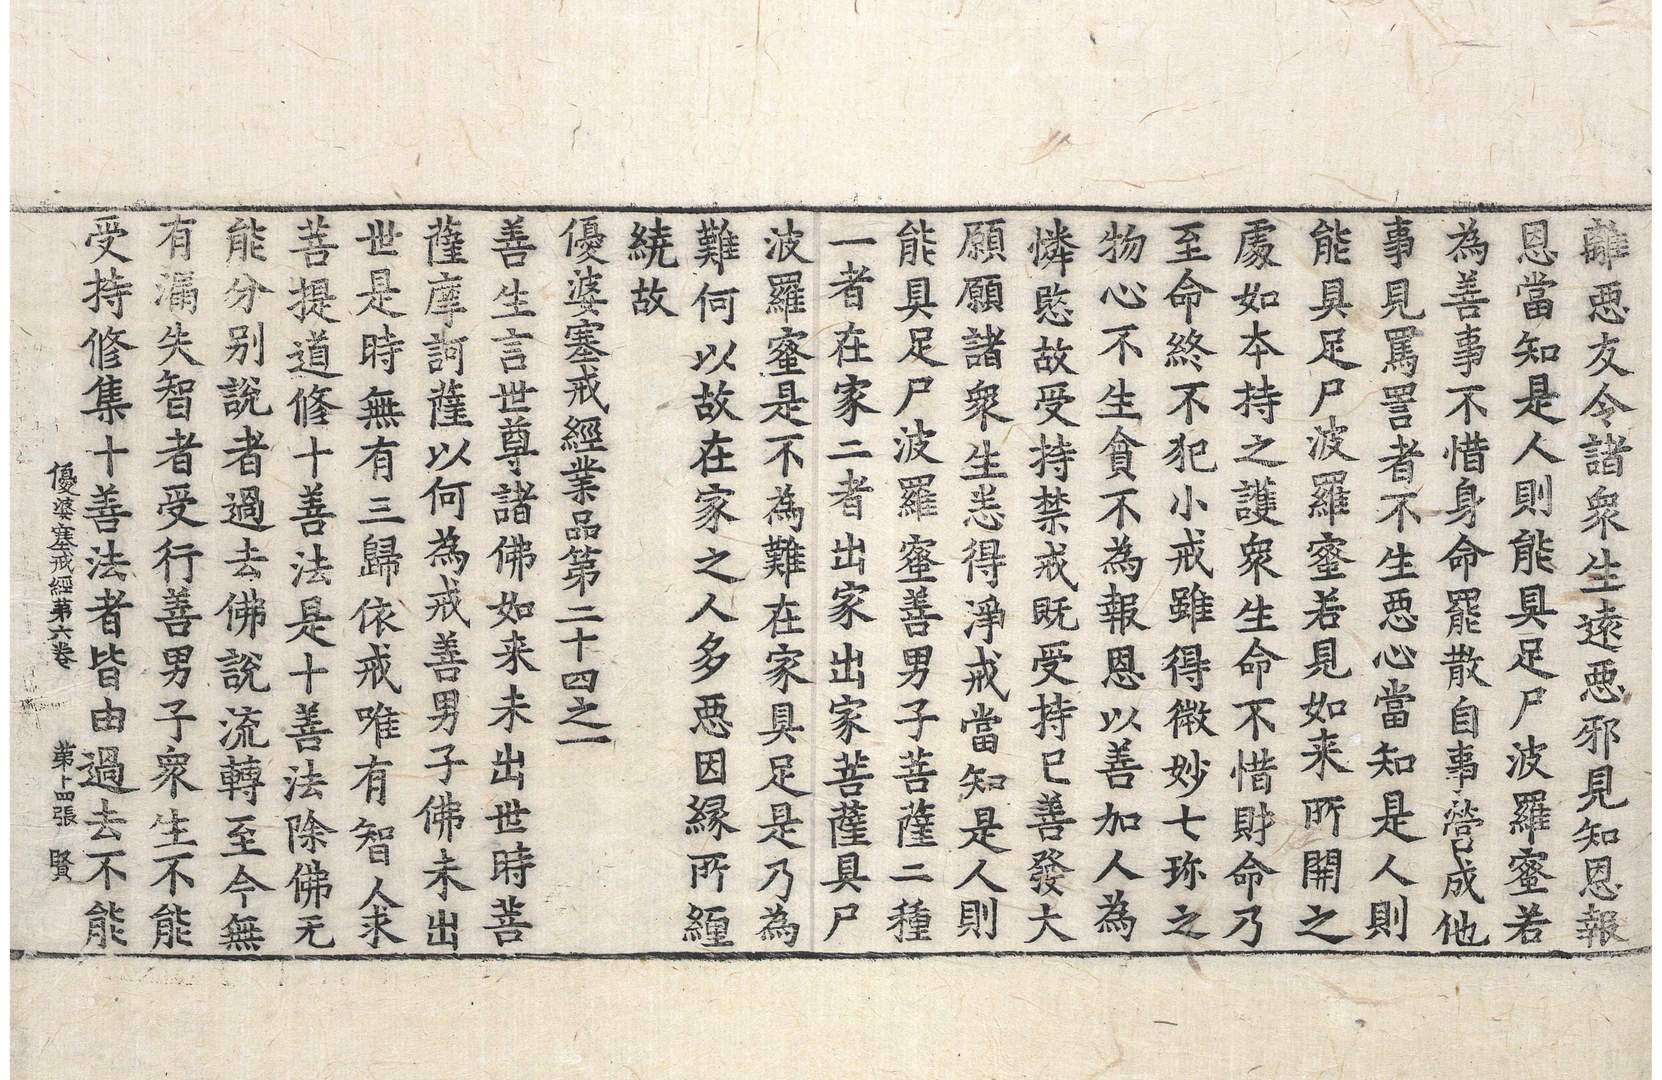 離惡友令諸衆生遠惡邪見知恩報
恩當知是人則能具足尸波羅蜜若
為善事不惜身命罷散自事營成他
事見罵詈者不生惡心當知是人則
能具足尸波羅蜜若見如来所開之
處如本持之護衆生命不惜財命乃
至命終不犯小戒雖得微妙七珎之
物心不生貪不為報恩以善加人為
憐愍故受持禁戒既受持已善發大
願願諸衆生悉得淨戒當知是人則
能具足尸波羅蜜善男子菩薩二種
一者在家二者出家出家菩薩具尸
波羅蜜是不為難在家具足是乃為
難何以故在家之人多惡因緣所纏
繞故
優婆塞戒經業品第二十四之一
善生言世尊諸佛如来未出世時菩
薩摩訶薩以何為戒善男子佛未出
世是時無有三歸依戒唯有智人求
菩提道修十善法是十善法除佛无
能分别說者過去佛說流轉至今無
有漏失智者受行善男子衆生不能
受持修集十善法者皆由過去不能
優婆塞戒經第六卷 第十四張 賢